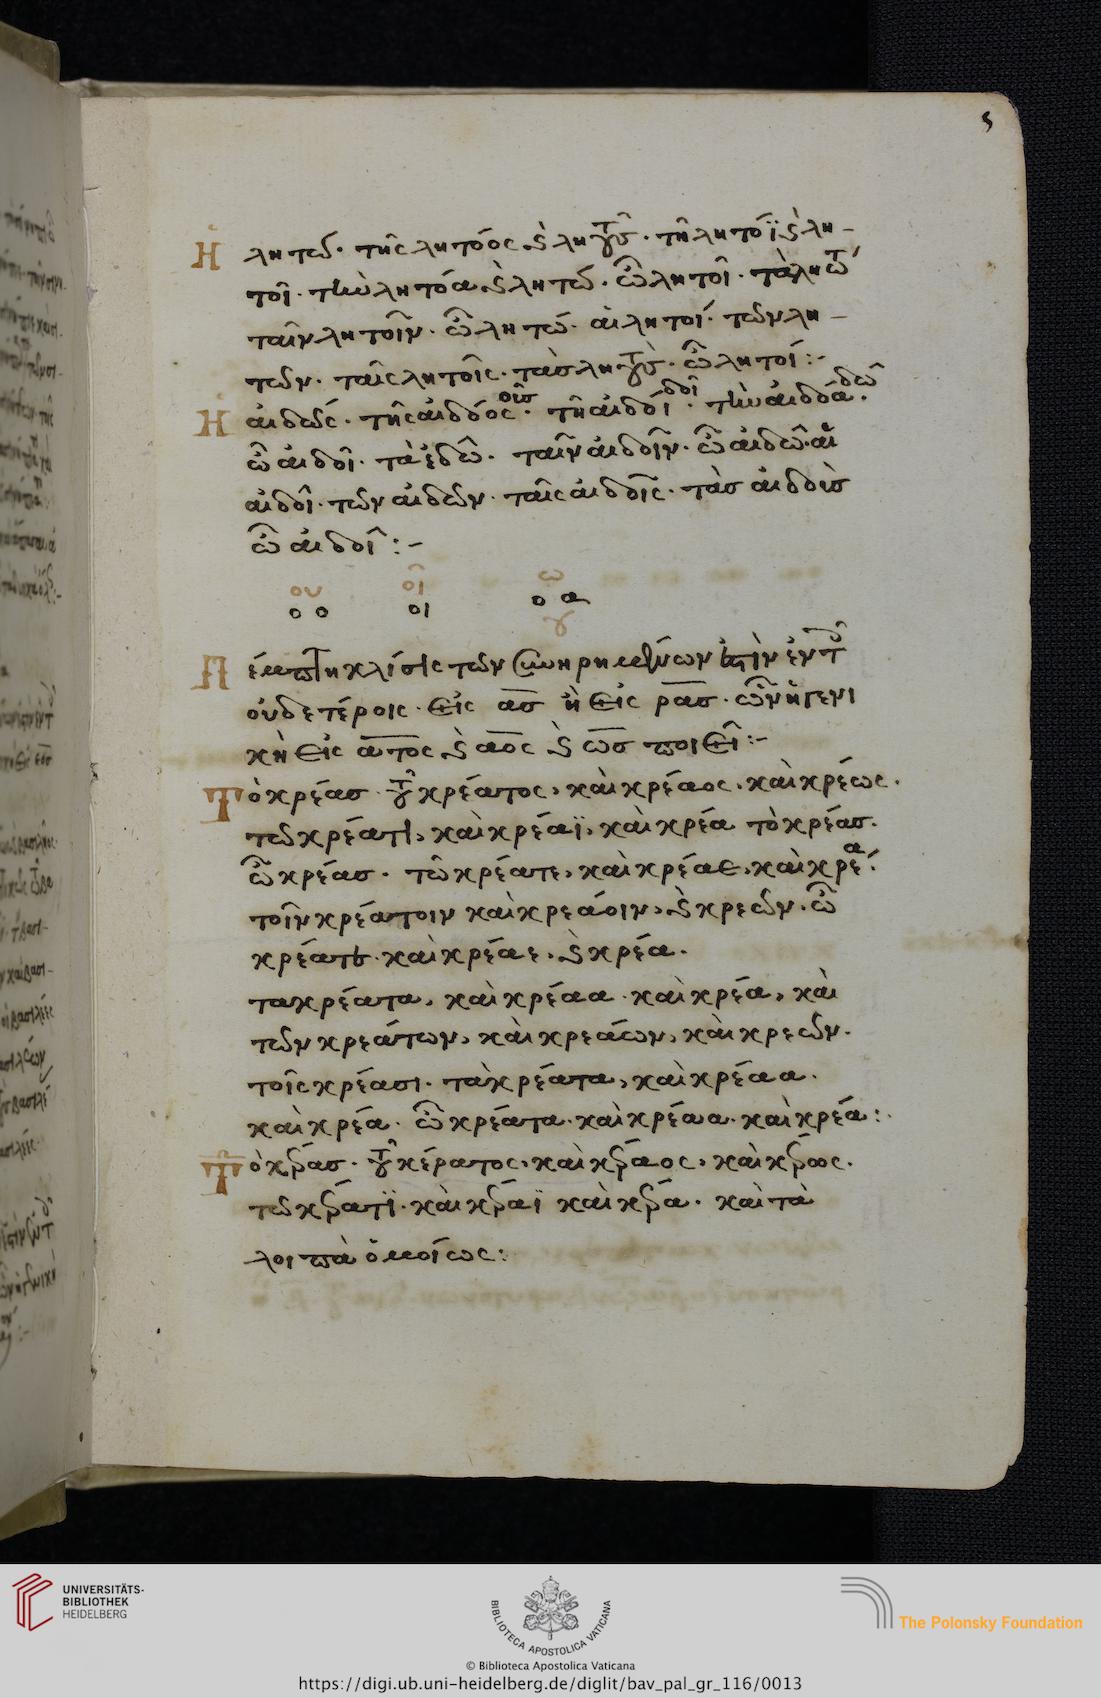 5
Ἡ λητώ· τῆς λητόος ϗ λητοῦς· τῆ λητόϊ ϗ λη–
τοῖ· τὴν λητόα ϗ λητώ· ὦ λητοῖ· τὰ λητώ
ταῖν λητοῖν· ὦ λητώ· αἱ λητοί· τῶν λη–
τῶν· ταῖς λητοῖς· τὰσ λητοὺς· ὦ λητοί:–
Ἡ αἰδώς· τῆς αἰδόος οῦς· τῆ αἰδόϊ δοῖ· τὴν αἰδόα δῶ·
ὦ αἰδοῖ· τὰ αἰδῶ· ταῖν αἰδοῖν· ὦ αἰδῶ· αἱ
αἰδοῖ· τῶν αἰδῶν· ταῖς αἰδοῖς· τὰσ αἰδοὺς
ὦ αἰδοῖ:–
ου οῖ ω
ο ο οι ο α
Πέμπτη κλίσις τῶν συνηρημένων ἐστὶν ἐν τοῖς
οὐδετέροις· εἰς ας ἢ εἰς ρας· ὧν ἡ γενι
κὴ εἰς ατος ϗ αος ϗ ως ποιεῖ:–
Τὸ κρέας· τοῦ κρέατος, καὶ κρέαος, καὶ κρέως·
τῶ κρέατι, καὶ κρέαϊ, καὶ κρέα τὸ κρέας·
ὦ κρέας· τὼ κρέατε, καὶ κρέαε, καὶ κρέα·
τοῖν κρέατοιν καὶ κρεάοιν, ϗ κρεῶν· ὦ
κρέατε· καὶ κρέαε, ϗ κρέα·
τα κρέατα, καὶ κρέαα· καὶ κρέα, καὶ
τῶν κρεάτων, καὶ κρεάων, καὶ κρεῶν·
τοῖς κρέασι· τὰ κρέατα, καὶ κρέαα·
καὶ κρέα· ὦ κρέατα· καὶ κρέαα· καὶ κρέα:
Τὸ κέρας· τοῦ κέρατος, καὶ κέραος, καὶ κέρως·
τῶ κέρατϊ· καὶ κέραϊ καὶ κέρα· καὶ τὰ
λοιπὰ ὁμοίως:
UNIVERSITÄTS-
BIBLIOTHEK
HEIDELBERG
BIBLIOTECA APOSTOLICA VATICANA
The Polonsky Foundation
© Biblioteca Apostolica Vaticana
https://digi.ub.uni-heidelberg.de/diglit/bav_pal_gr_116/0013